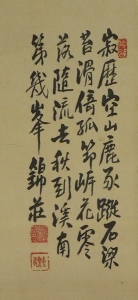 寂歷空山鹿豕蹤石梁
苔滑倚孤筇岍花零
落隨流去秋到溪南
第幾峯 錦莊